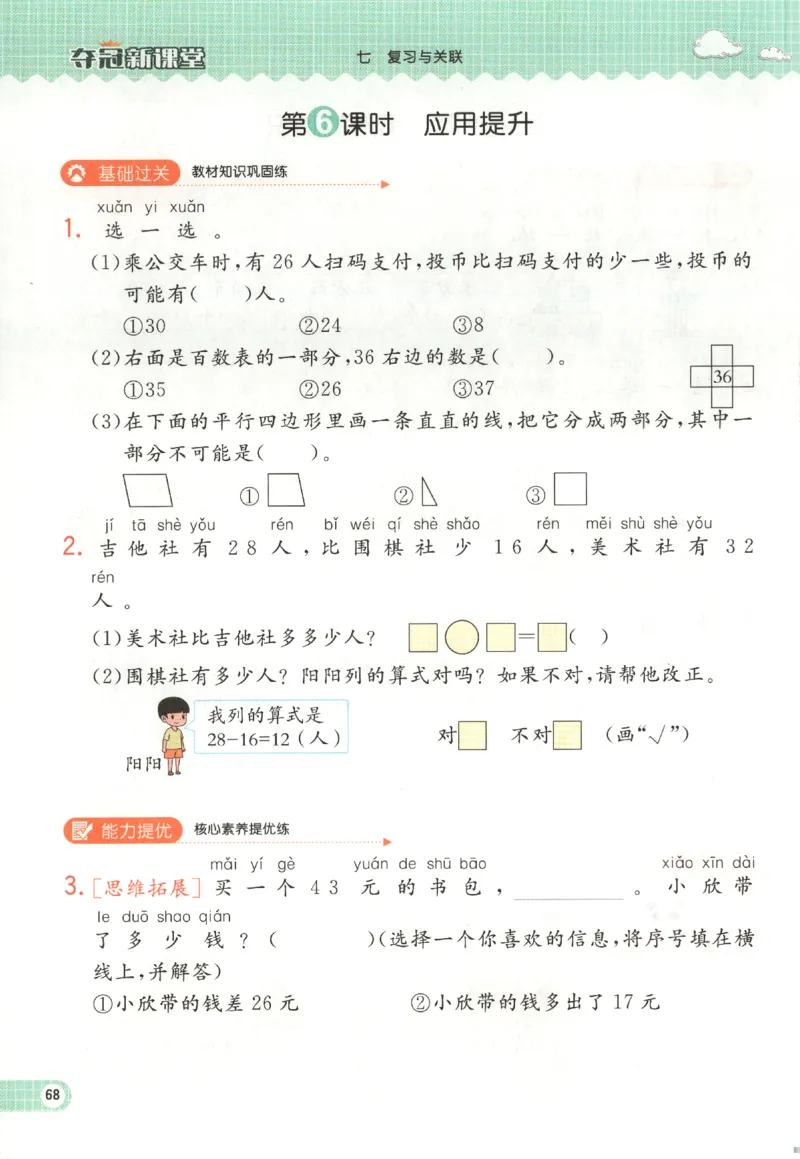 夺冠新课堂
七 复习与关联
第6课时 应用提升
基础过关 教材知识巩固练
xuǎn yi xuǎn
1. 选 一 选 。
(1)乘公交车时,有 26 人扫码支付,投币比扫码支付的少一些,投币的
可能有( )人。
①30 ②24 ③8
(2)右面是百数表的一部分,36 右边的数是( )。
36
①35 ②26 ③37
(3)在下面的平行四边形里画一条直直的线,把它分成两部分,其中一
部分不可能是( )。
① ② ③
jí tā shè yǒu rén bǐ wéi qí shè shǎo rén měi shù shè yǒu
2. 吉 他 社 有 28 人 , 比 围 棋 社 少 16 人 , 美 术 社 有 32
rén
人 。
(1)美术社比吉他社多多少人? □○□=□( )
(2)围棋社有多少人? 阳阳列的算式对吗? 如果不对,请帮他改正。
我列的算式是
28-16=12(人)
阳阳
对□ 不对□ (画“√”)
能力提优 核心素养提优练
mǎi yí gè yuán de shū bāo xiǎo xīn dài
3. [思维拓展] 买 一 个 43 元 的 书 包 , ________ 。 小 欣 带
le duō shao qián
了 多 少 钱 ? ( )(选择一个你喜欢的信息,将序号填在横
线上,并解答)
①小欣带的钱差 26 元 ②小欣带的钱多出了 17 元
68